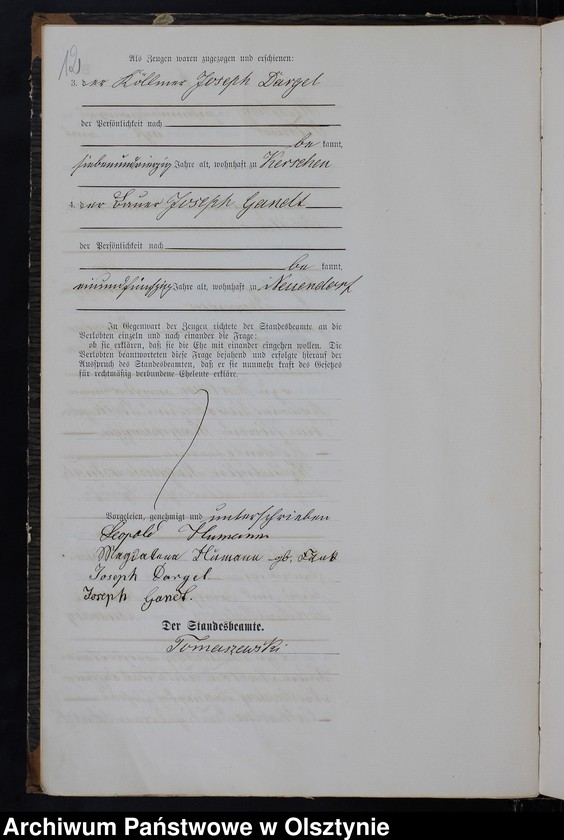 12
Als Zeugen waren zugezogen und erschienen:
3. der Köllmer Joseph Dargel
der Persönlichkeit nach
be kannt,
siebenundvierzig Jahre alt, wohnhaft zu Kerschen
4. der Bauer Joseph Gandt
der Persönlichkeit nach
be kannt,
einundfünfzig Jahre alt, wohnhaft zu Neuendorf
In Gegenwart der Zeugen richtete der Standesbeamte an die
Verlobten einzeln und nach einander die Frage:
ob sie erklären, daß sie die Ehe mit einander eingehen wollen. Die
Verlobten beantworteten diese Frage bejahend und erfolgte hierauf der
Ausspruch des Standesbeamten, daß er sie nunmehr kraft des Gesetzes
für rechtmäßig verbundene Eheleute erkläre.
Vorgelesen, genehmigt und unterschrieben
Leopold Humann
Magdalena Humann gb.
Joseph Dargel
Joseph Gandt.
Der Standesbeamte.
Tomaszewski
Archiwum Państwowe w Olsztynie